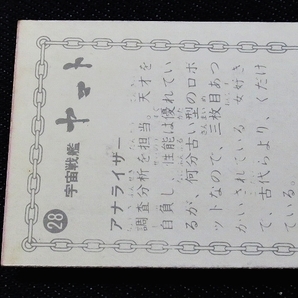 28
宇宙戦艦
ヤマト
アナライザー
調査分析を担当。天才を
自負し、性能は優れてい
るが、何分古い型のロボ
ットなので、三枚目あつ
かいされている。女好き
で、古代らより、くだけ
ている。